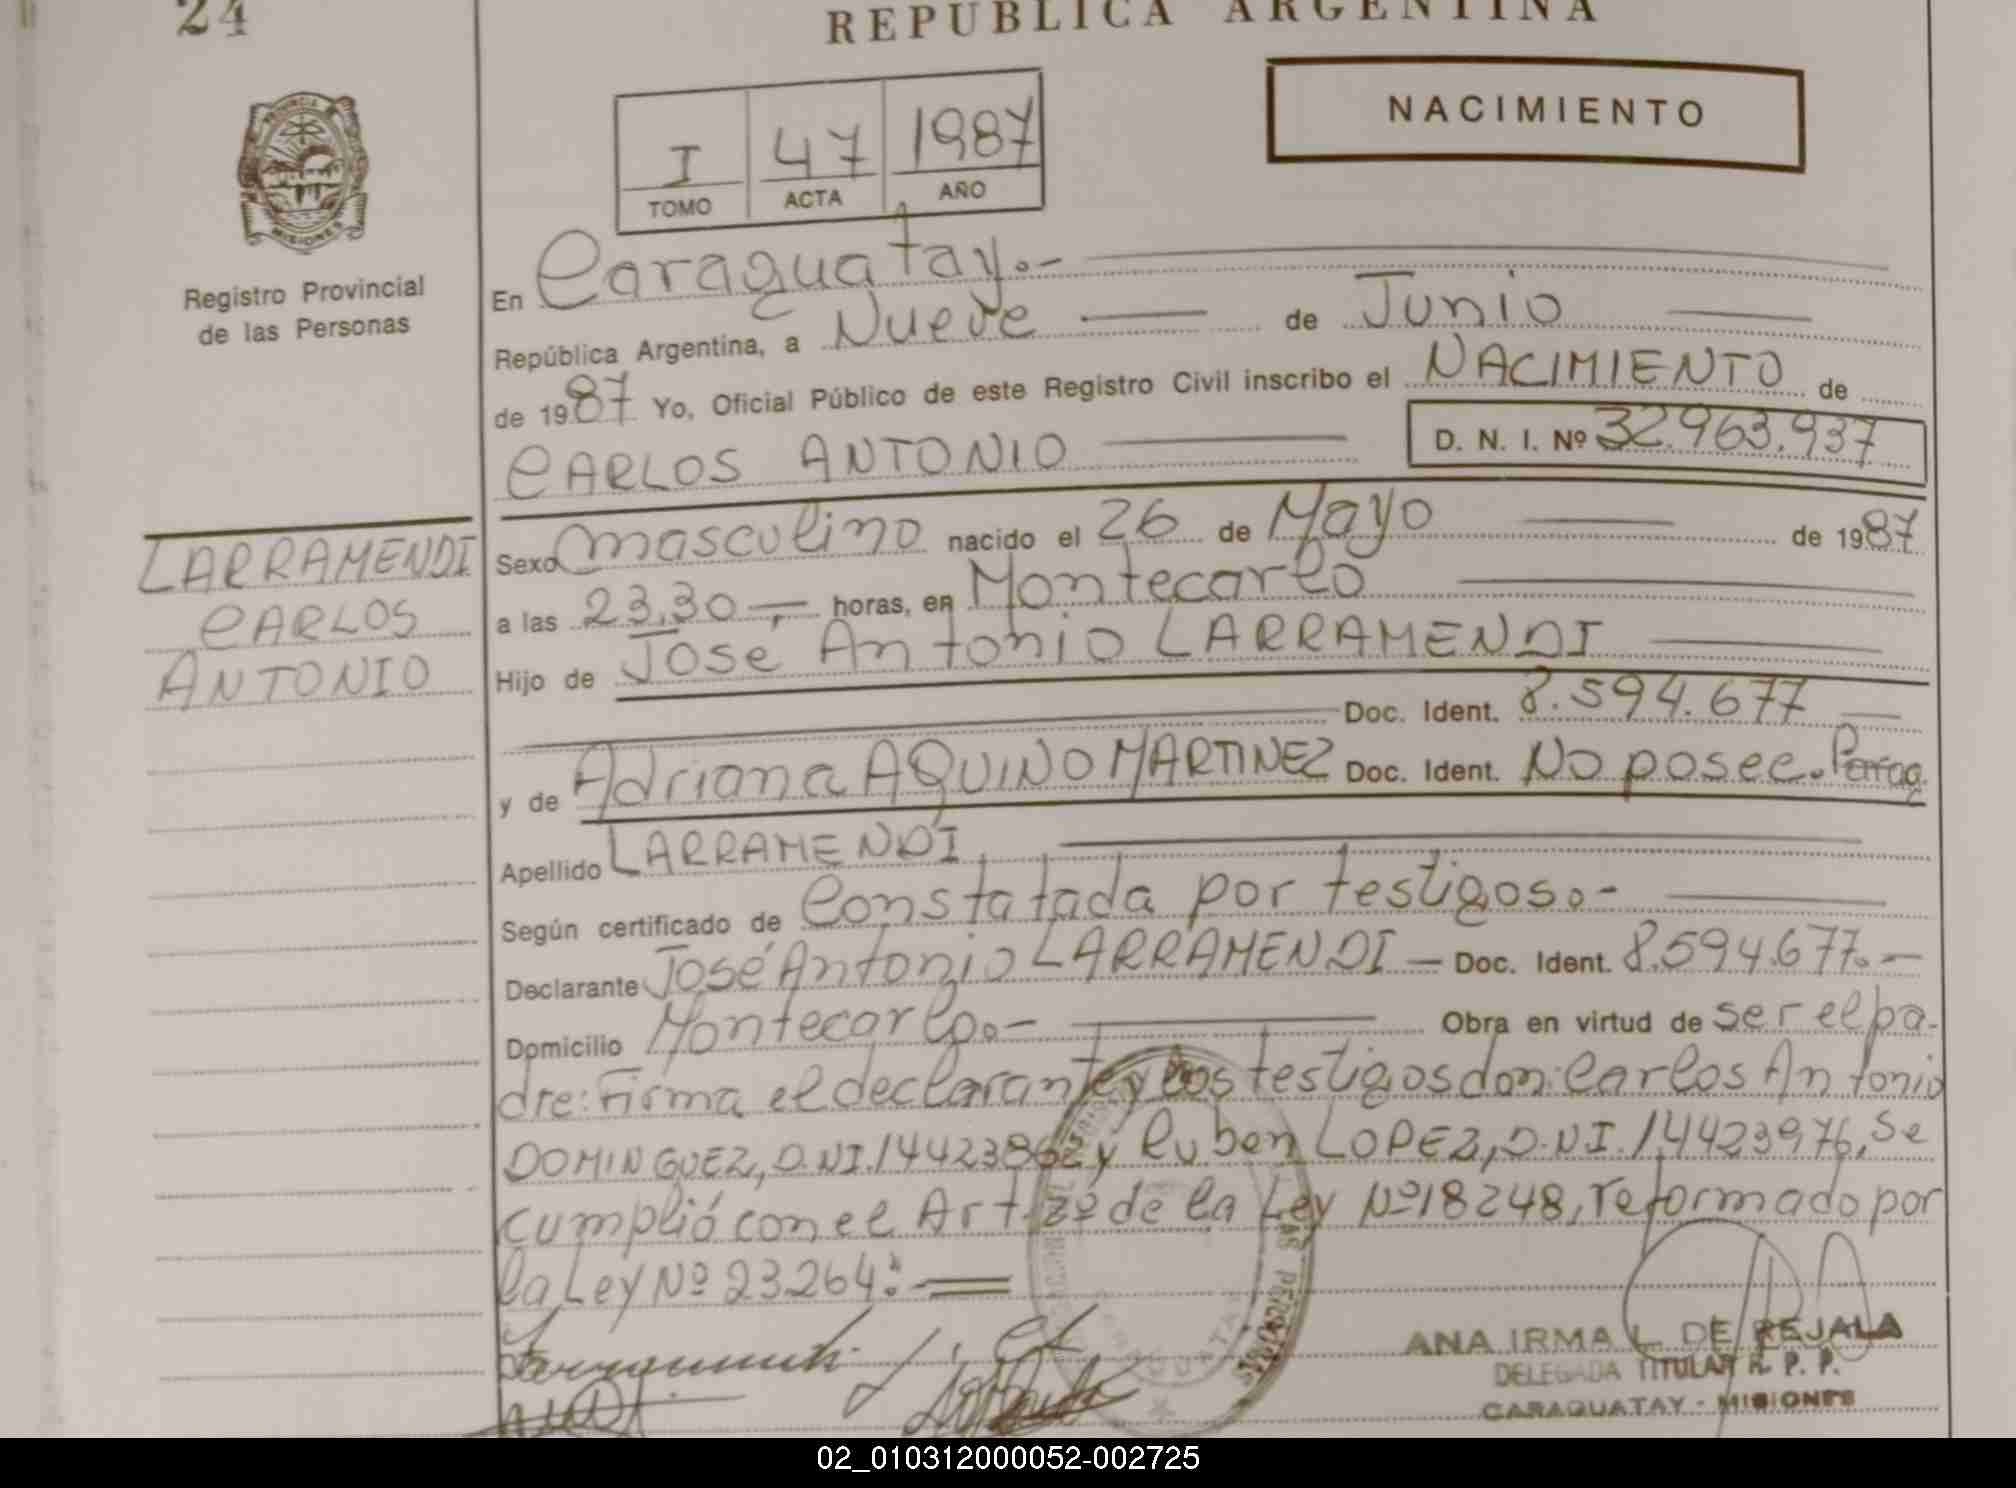 24
REPUBLICA ARGENTINA
NACIMIENTO
I 47 1987
TOMO ACTA AÑO
PROVINCIA
MISIONES
Registro Provincial
de las Personas
En Caraguatay.-
República Argentina, a Nueve de Junio
de 1987 Yo, Oficial Público de este Registro Civil inscribo el NACIMIENTO de
CARLOS ANTONIO D. N. I. Nº 32.963.937
LARRAMENDI
CARLOS
ANTONIO
Sexo masculino nacido el 26 de Mayo de 1987
a las 23,30 horas, en Montecarlo
Hijo de José Antonio LARRAMENDI
Doc. Ident. 8.594.677
y de Adriana AQUINO MARTINEZ Doc. Ident. No posee. Parag
Apellido LARRAMENDI
Según certificado de Constatada por testigos.-
Declarante José Antonio LARRAMENDI - Doc. Ident. 8.594.677.-
Domicilio Montecarlo.- Obra en virtud de ser el pa-
dre: Firma el declarante y los testigos don: Carlos Antonio
DOMINGUEZ, D.NI. y Ruben LOPEZ, D.NI. 14423976, se
cumplió con el Art. 2º de la Ley Nº 18248, reformado por
la Ley Nº 23264:-
ANA IRMA L. DE REJALA
DELEGADA TITULAR R. P. P.
CARAGUATAY - MISIONES
02_010312000052-002725